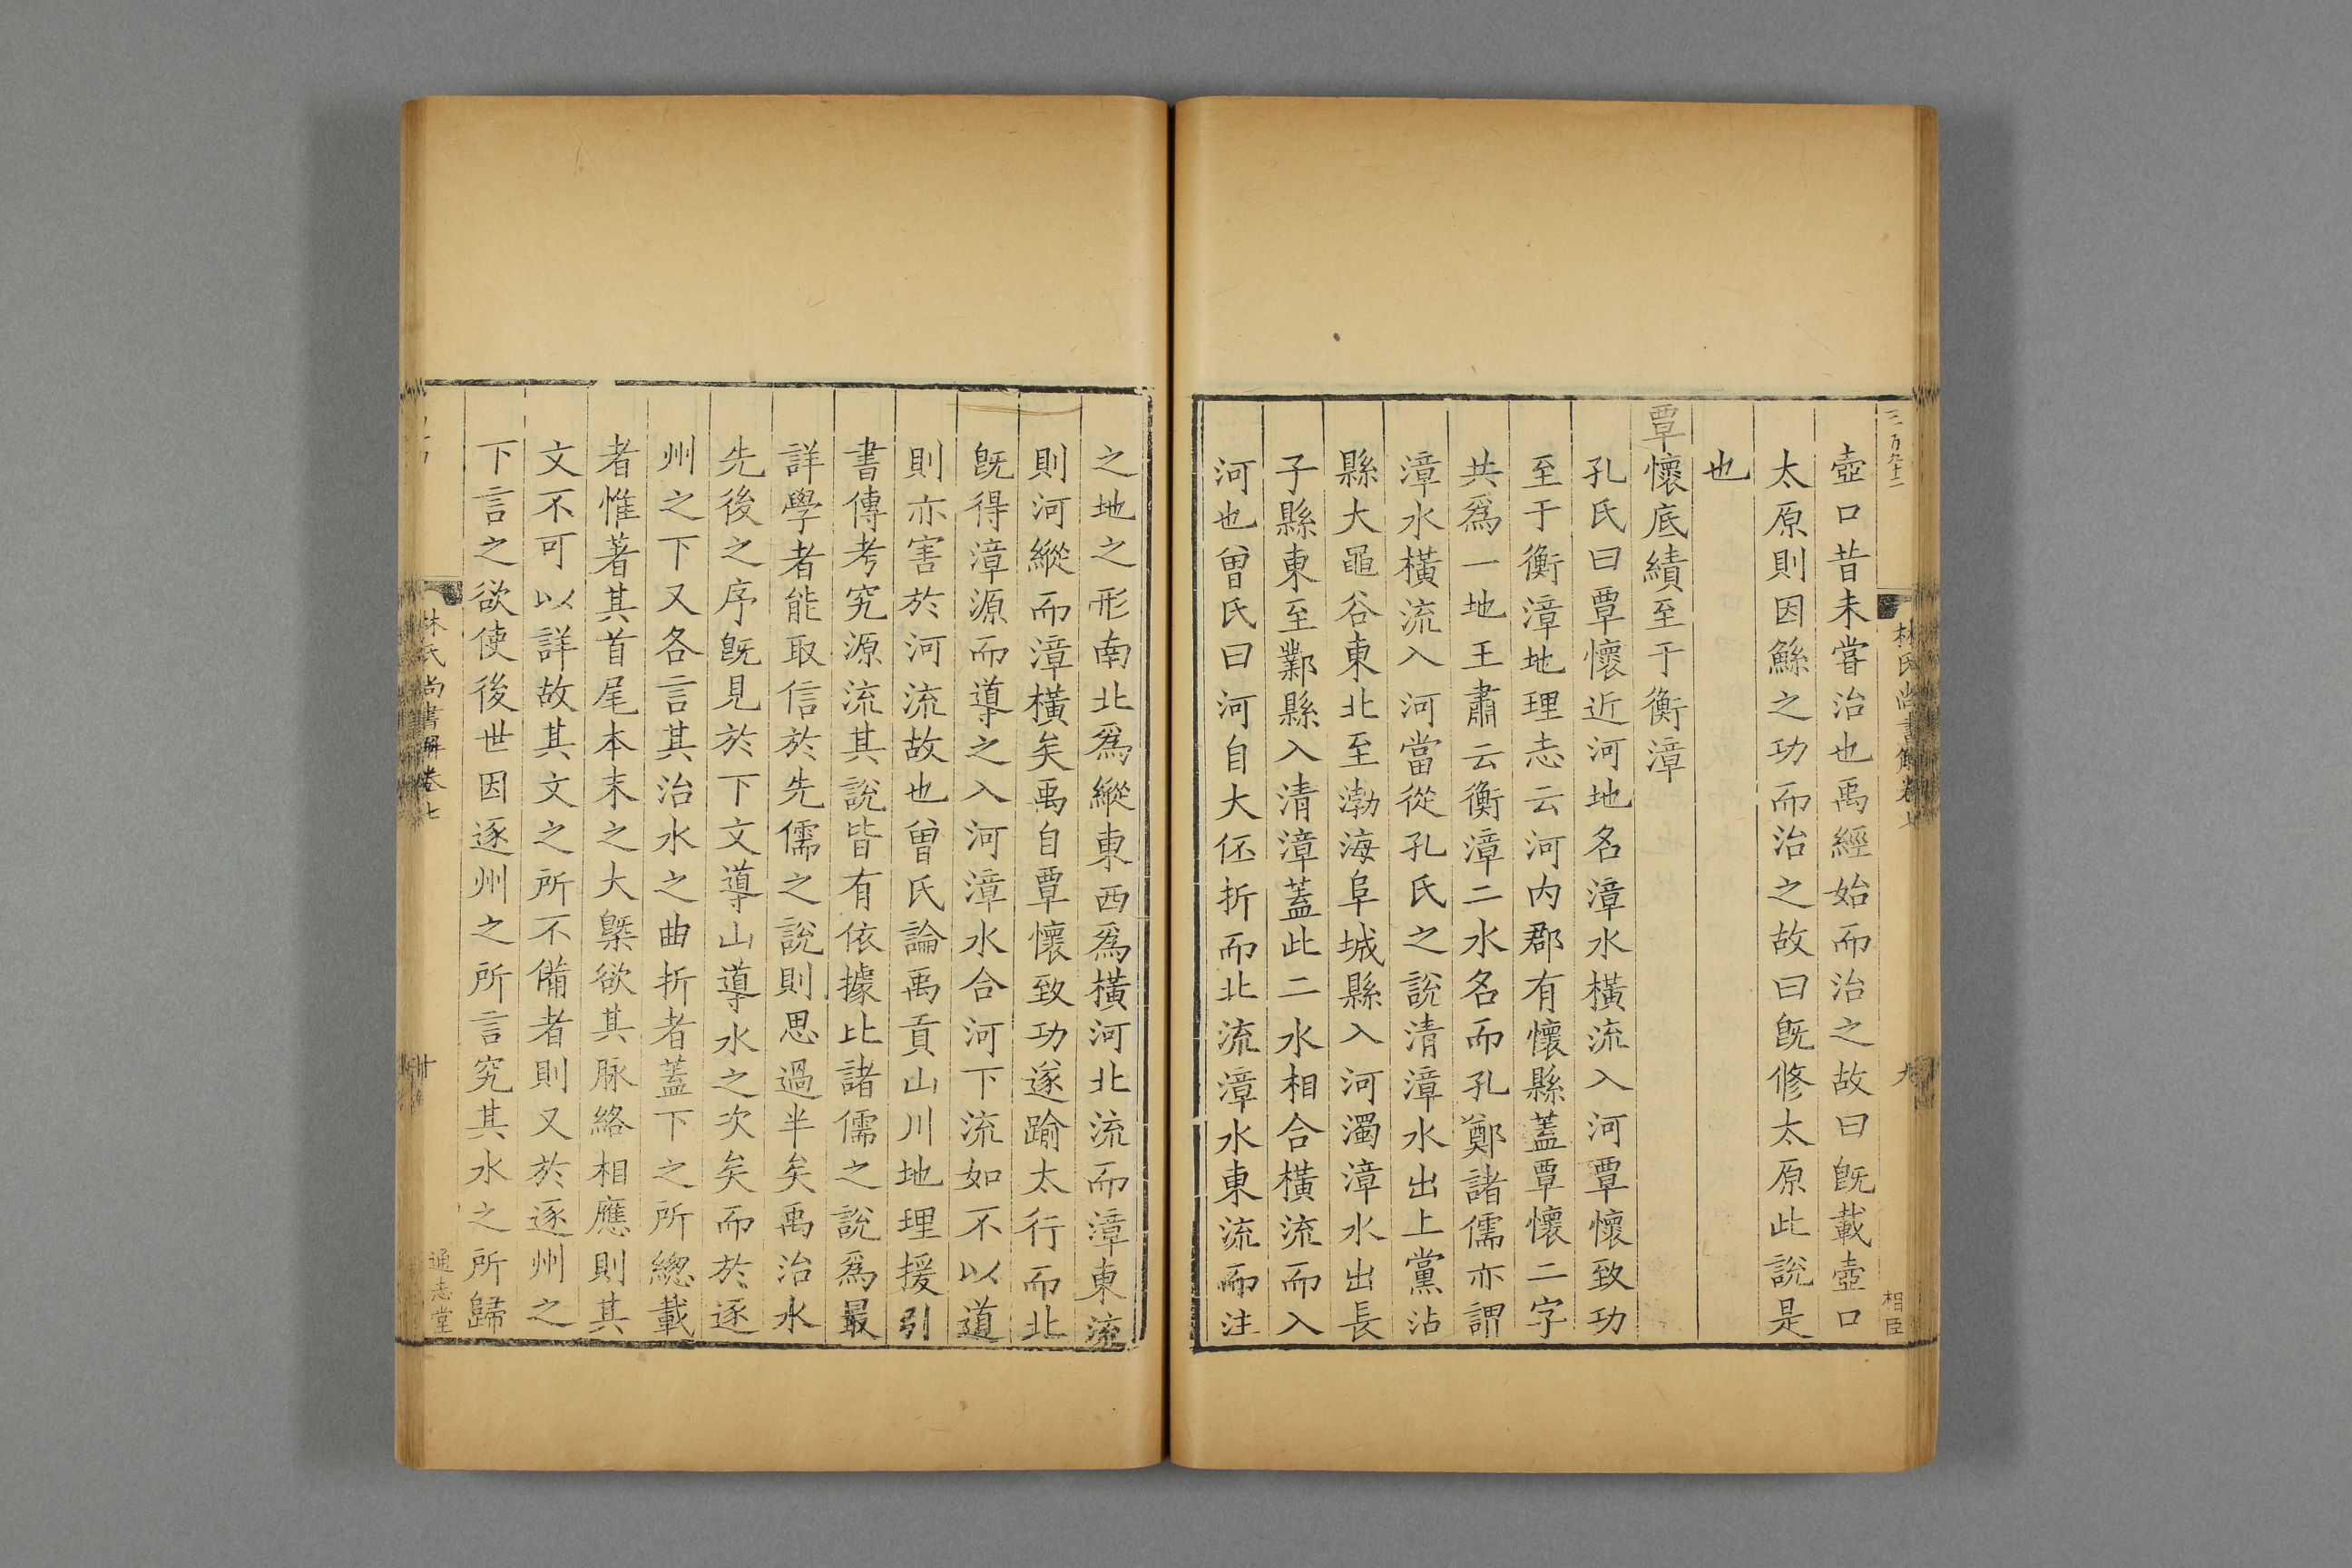 林氏尚書解卷七
九
相臣
壺口昔未甞治也禹經始而治之故曰旣載壺口
太原則因鯀之功而治之故曰旣修太原此說是
也
覃懷底績至于衡漳
孔氏曰覃懷近河地名漳水橫流入河覃懷致功
至于衡漳地理志云河内郡有懷縣蓋覃懷二字
共爲一地王肅云衡漳二水名而孔鄭諸儒亦謂
漳水橫流入河當從孔氏之說清漳水出上黨沾
縣大黽谷東北至渤海阜城縣入河濁漳水出長
子縣東至鄴縣入清漳蓋此二水相合橫流而入
河也曾氏曰河自大伾折而北流漳水東流而注
之地之形南北爲縱東西爲橫河北流而漳東流
則河縱而漳橫矣禹自覃懷致功遂踰太行而北
旣得漳源而導之入河漳水合河下流如不以道
則亦害於河流故也曾氏論禹貢山川地理援引
書傳考究源流其說皆有依據比諸儒之說爲最
詳學者能取信於先儒之說則思過半矣禹治水
先後之序旣見於下文導山導水之次矣而於逐
州之下又各言其治水之曲折者蓋下之所緫載
者惟著其首尾本末之大槩欲其脉絡相應則其
文不可以詳故其文之所不備者則又於逐州之
下言之欲使後世因逐州之所言究其水之所歸
林氏尚書解卷七
十
通志堂